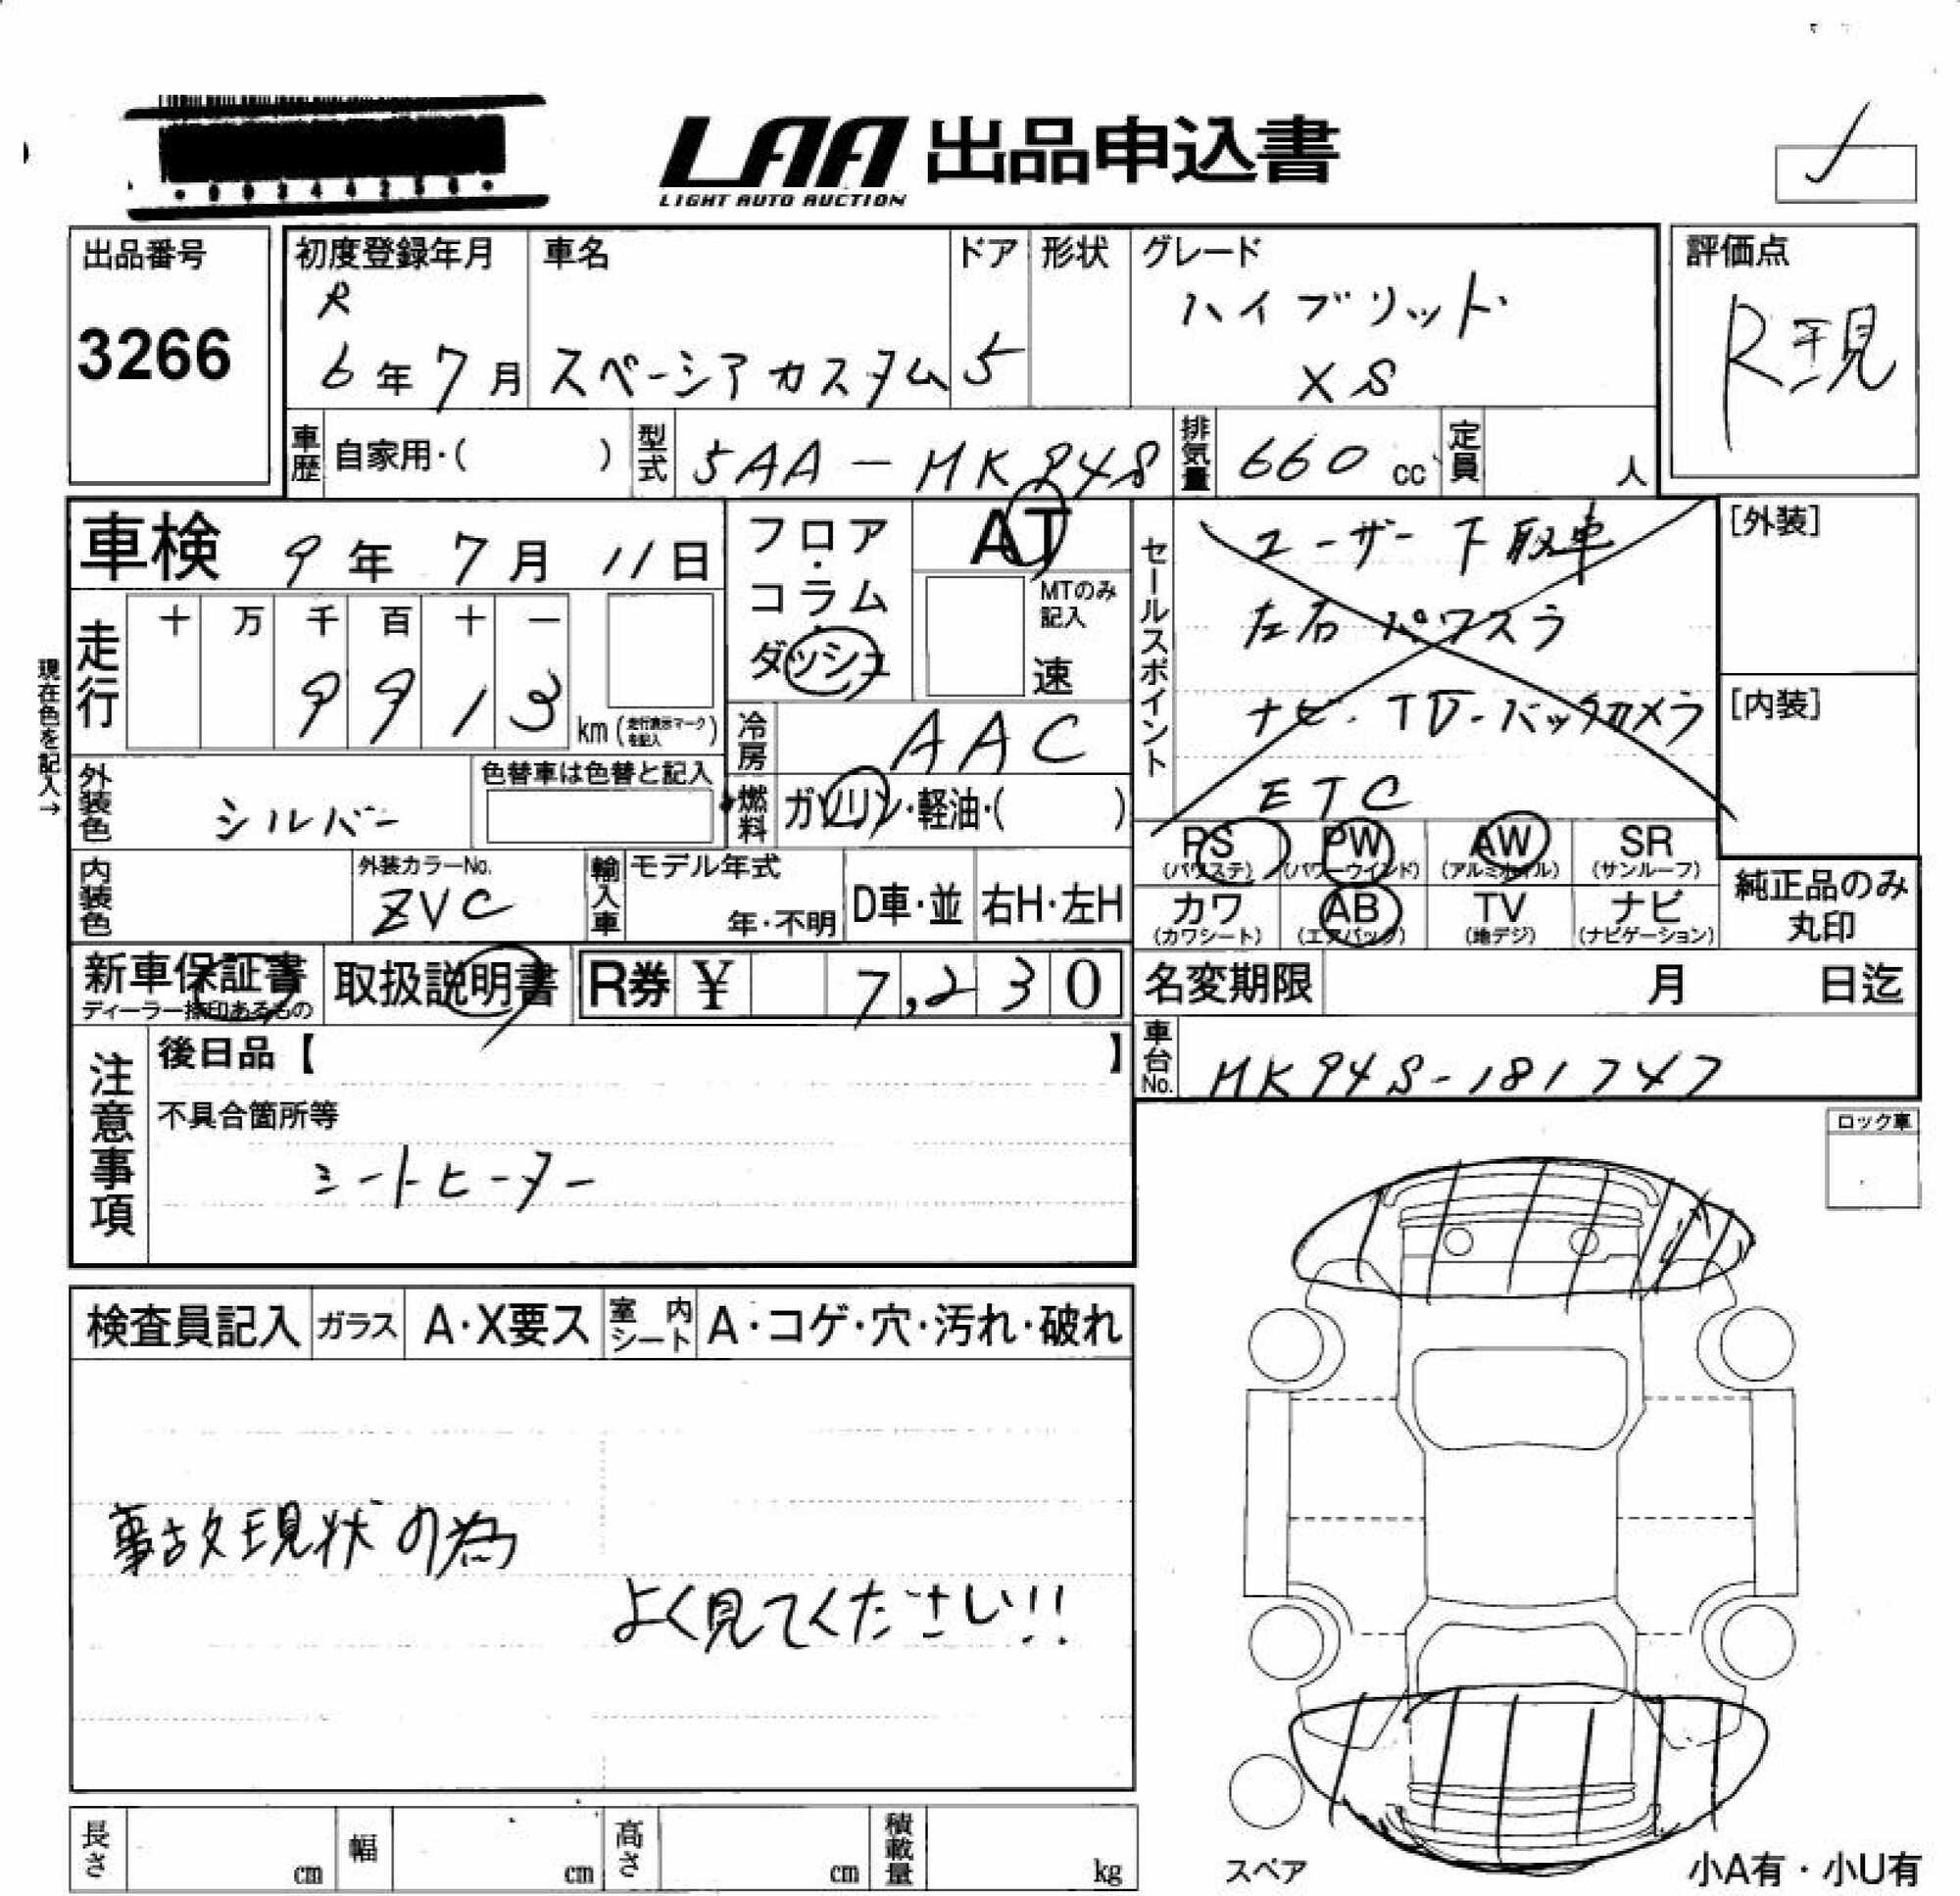 LAA 出品申込書
LIGHT AUTO AUCTION
出品番号
3266
初度登録年月
R
6年7月
車名
スペーシアカスタム
ドア
5
形状
グレード
ハイブリット
XS
評価点
R現
車歴 自家用・( )
型式 5AA-MK94S
排気量 660 cc
定員 人
車検 9年7月11日
走行 十 万 千 百 十 一
9 9 1 3 km (走行表示マークを記入)
現在色を記入→
外装色 シルバー
色替車は色替と記入
内装色
外装カラーNo.
ZVC
フロア・コラム・ダッシュ
AT
MTのみ記入
速
冷房 AAC
燃料 ガソリン・軽油・( )
輸入車
モデル年式
年・不明
D車・並
右H・左H
セールスポイント
ユーザー下取車
左右パワスラ
ナビ・TV・バックカメラ
ETC
[外装]
[内装]
PS (パワステ) PW (パワーウインド) AW (アルミホイル) SR (サンルーフ)
カワ (カワシート) AB (エアバック) TV (地デジ) ナビ (ナビゲーション)
純正品のみ丸印
新車保証書
ディーラー捺印あるもの
取扱説明書
R券 ¥ 7,230
名変期限 月 日迄
車台No. MK94S-181747
注意事項
後日品【 】
不具合箇所等
シートヒーター
ロック車
検査員記入 ガラス A・X要ス 室内シート A・コゲ・穴・汚れ・破れ
事故現状の為
よく見てください!!
長さ cm 幅 cm 高さ cm 積載量 kg
スペア
小A有・小U有